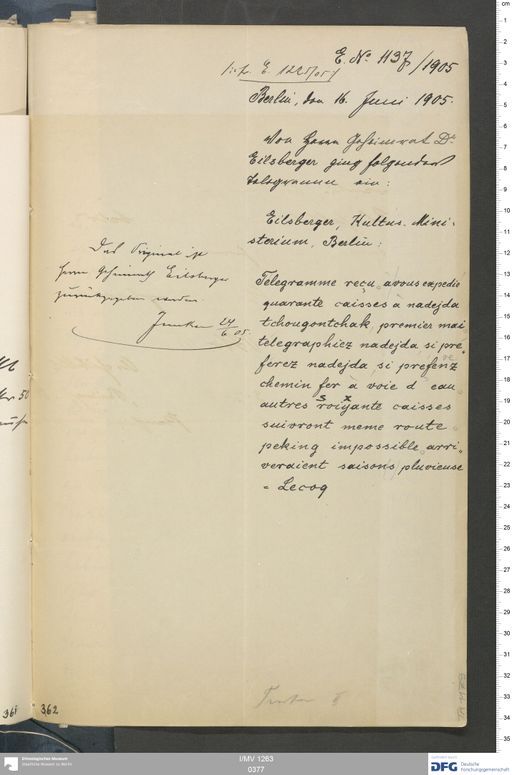 E. No 1137/1905
Berlin, den 16. Juni 1905.
Von Herrn Geheimrat Dr
Eilsberger ging folgendes
Telegramm ein:
Eilsberger, Kultus-Mini-
sterium, Berlin:
Telegramme reçu, avous expedié
quarante caisses à nadejda
tchougontchak, premier mai
telegraphiez nadejda si pré
ferez nadejda, si prefenz
chemin fer à voie d'eau
autres roiyante caisses
s x
suivront meme route
peking impossible arri-
veraient saisons pluvieuse
= Lecoq
Das Original ist
Herrn Geheimrat Eilsberger
zurückgegeben worden.
Junker 24/6 05.
361
362
I/MV 1263
0377
Ethnologisches Museum
Staatliche Museen zu Berlin
DFG Deutsche
Forschungsgemeinschaft